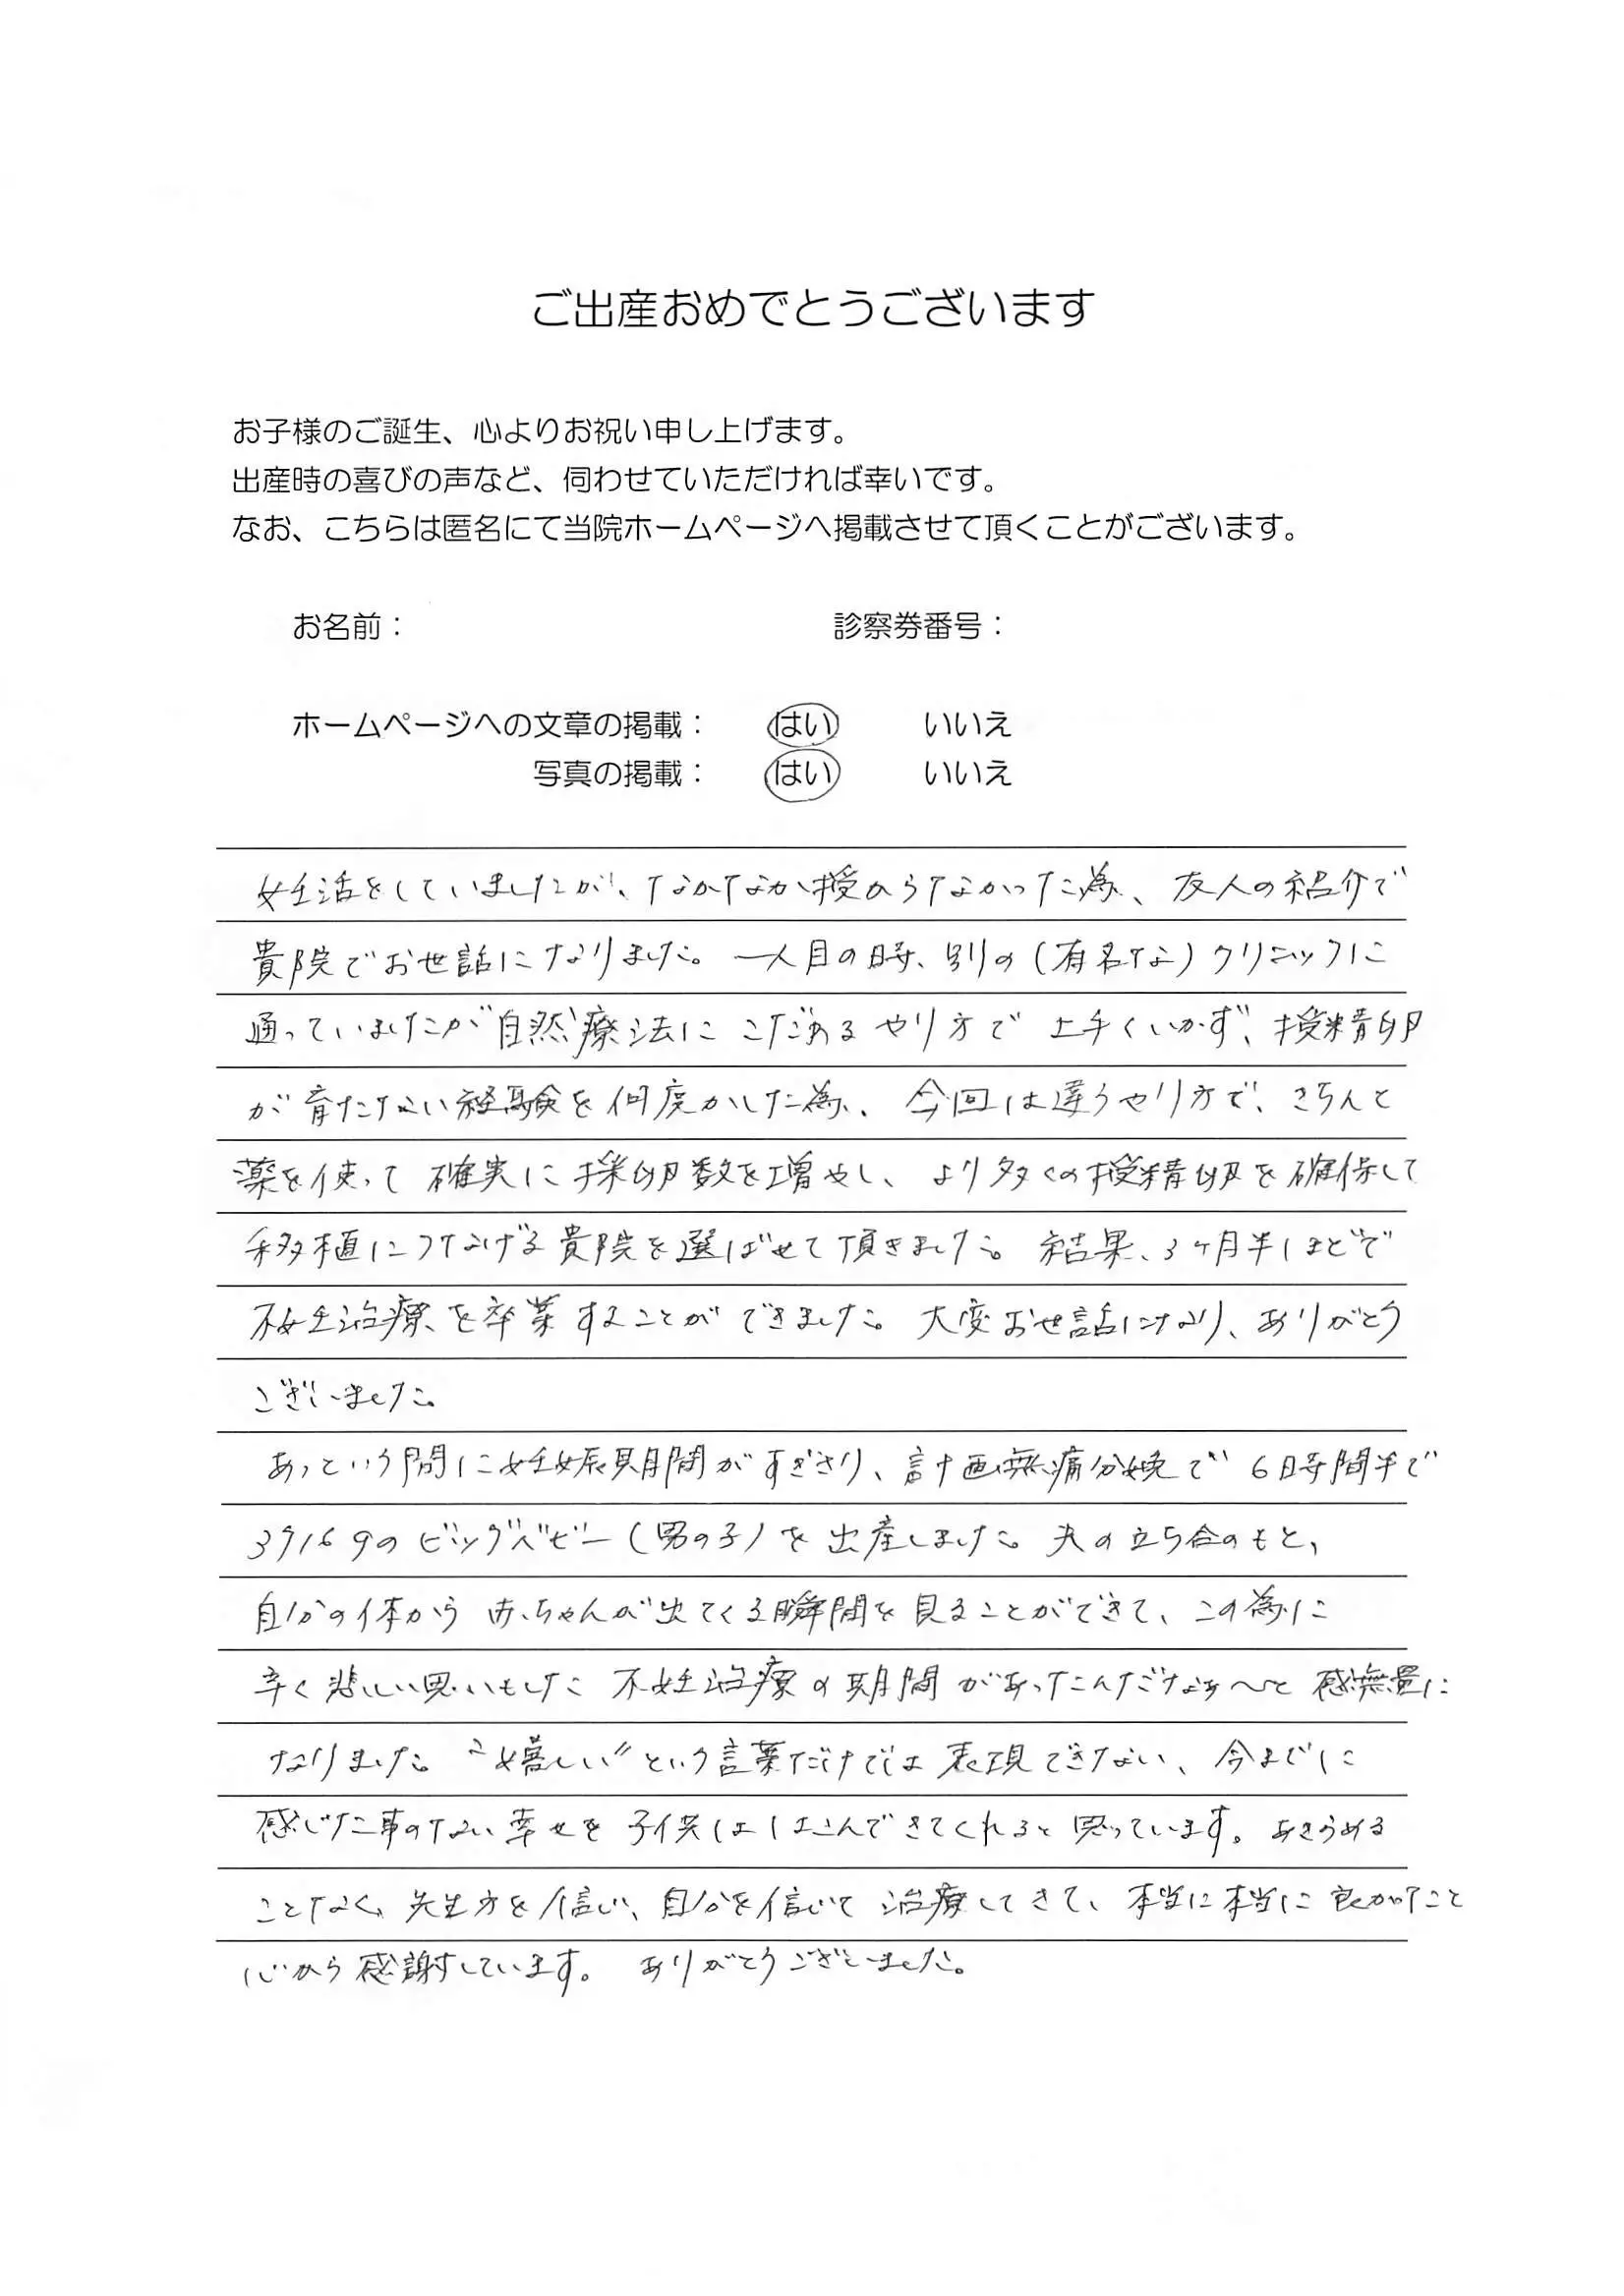 ご出産おめでとうございます
お子様のご誕生、心よりお祝い申し上げます。
出産時の喜びの声など、伺わせていただければ幸いです。
なお、こちらは匿名にて当院ホームページへ掲載させて頂くことがございます。
お名前： 診察券番号：
ホームページへの文章の掲載： はい いいえ
写真の掲載： はい いいえ
妊活をしていましたが、なかなか授からなかった為、友人の紹介で
貴院でお世話になりました。一人目の時、別の(有名な)クリニックに
通っていましたが自然療法にこだわるやり方で上手くいかず、授精卵
が育たない経験を何度かした為、今回は違うやり方で、きちんと
薬を使って確実に採卵数を増やし、より多くの授精卵を確保して
移植につなげる貴院を選ばせて頂きました。結果、3ヶ月半ほどで
不妊治療を卒業することができました。大変お世話になり、ありがとう
ございました。
あっという間に妊娠期間がすぎさり、計画無痛分娩で6時間半で
3916gのビッグベビー(男の子)を出産しました。夫の立ち合のもと、
自分の体から赤ちゃんが出てくる瞬間を見ることができて、この為に
辛く悲しい思いもした不妊治療の期間があったんだなぁ〜と感無量に
なりました。“嬉しい”という言葉だけでは表現できない、今までに
感じた事のない幸せを子供ははこんできてくれると思っています。あきらめる
ことなく、先生方を信じ、自分を信じて治療してきて、本当に本当に良かったこと
心から感謝しています。ありがとうございました。